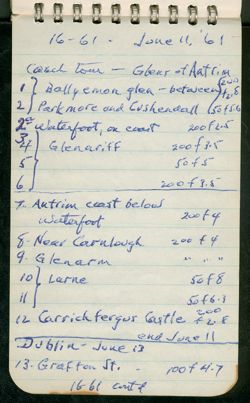 16-61. June 11, '61
Coach tour - Glens of Antrim
1 } Ballyemon glen - between 200 f2.8
2 } Parkmore and Cushendall 50 f5.6
3 Waterfoot, on coast 200 f3.5
4 } Glenariff 200 f3.5
5 50 f5
6 200 f3.5
7. Antrim coast below
Waterfoot 200 f4
8. Near Carnlough 200 f4
9. Glenarm " " "
10 } Larne 50 f8
11 50 f6.3
12 Carrickfergus Castle 200 f2.8
end June 11
Dublin - June 13
13. Grafton St. - 100 f4.7
16-61 contd